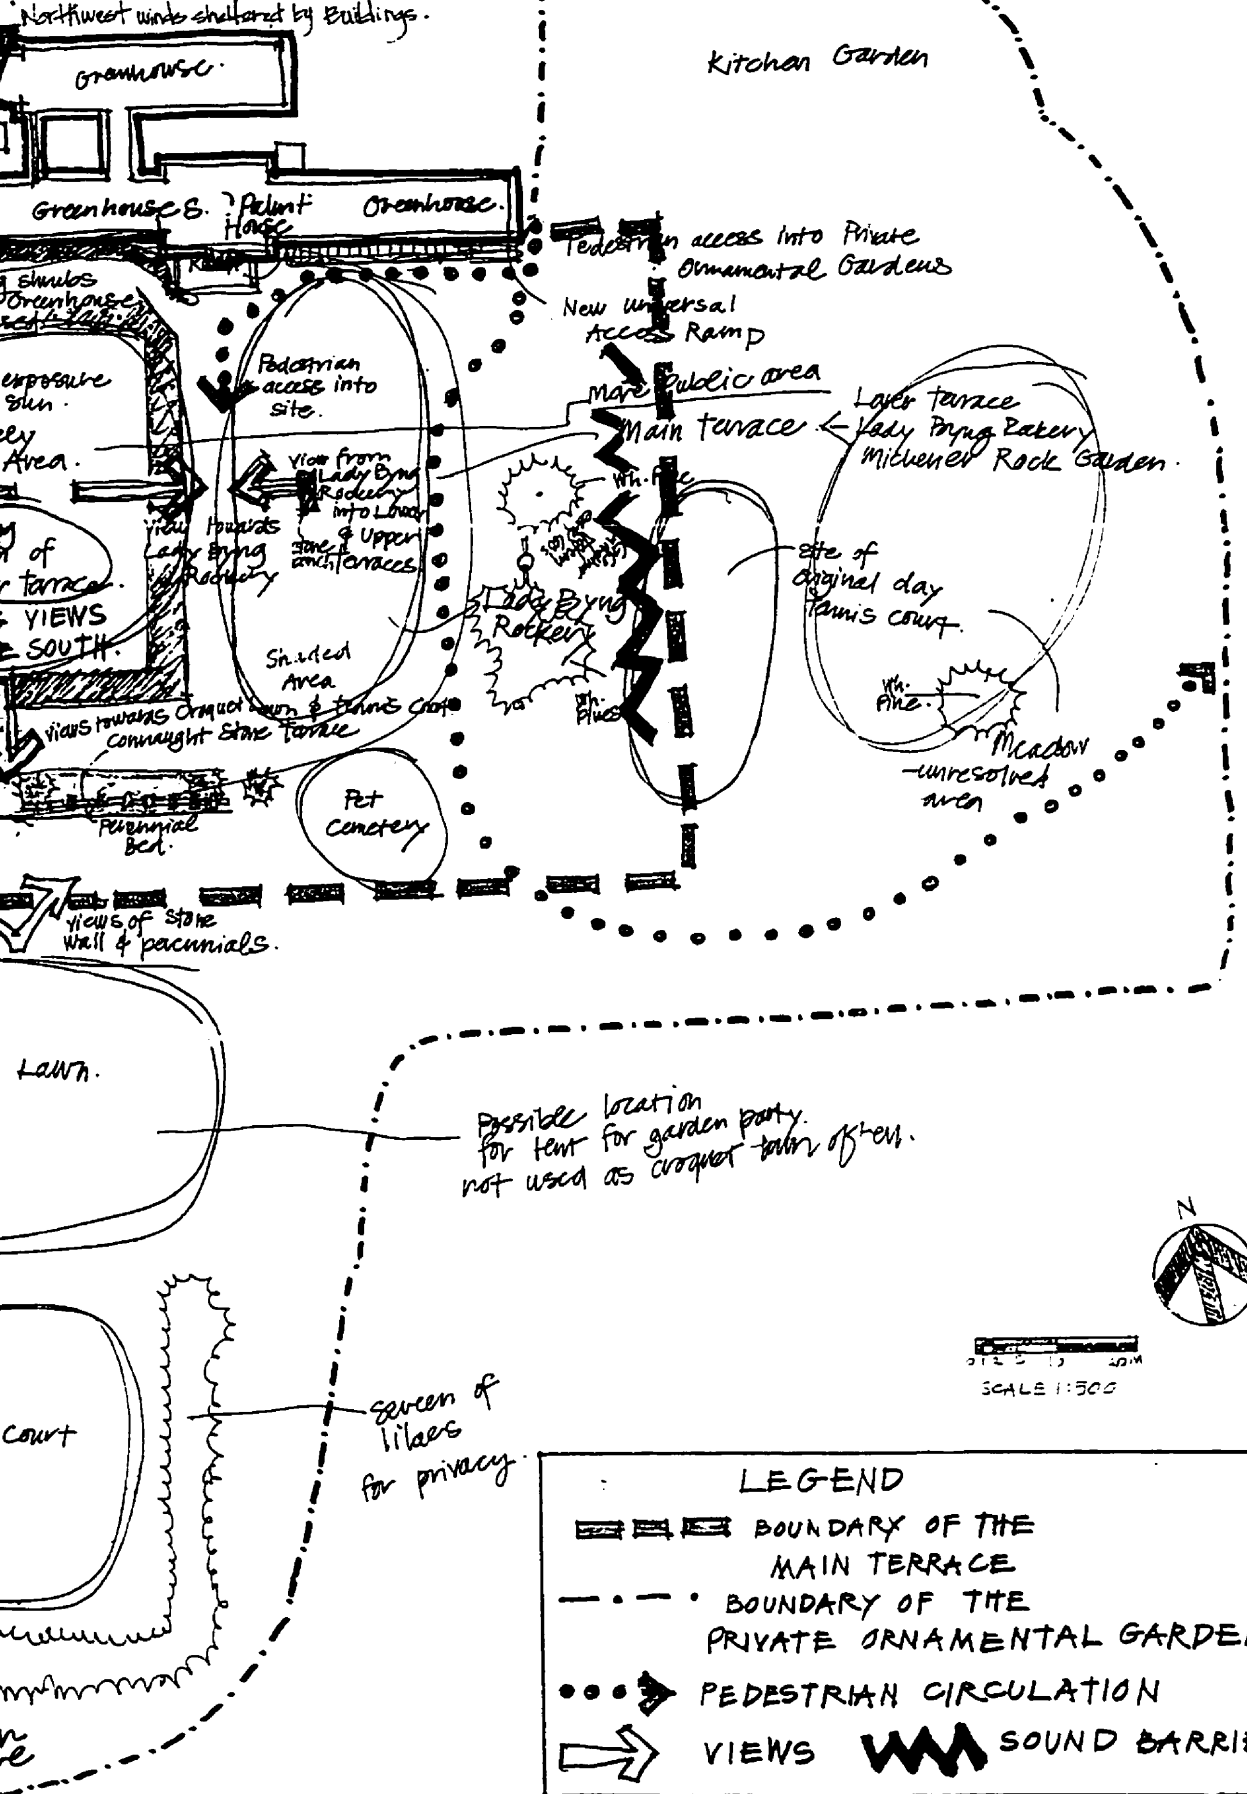 Northwest winds sheltered by Buildings.
Greenhouse.
Kitchen Garden
Greenhouses.
Palm House
Greenhouse.
Pedestrian access into Private
Ornamental Gardens
New universal
Access Ramp
shrubs
Greenhouse
exposure
sun.
Area.
Pedestrian
access into
site.
More public area
Main terrace
Lower terrace
Lady Byng Rockery
Michener Rock Garden.
view from
Lady Byng
Rockery
into Lower
& Upper
terraces
view towards
Lady Byng
Rockery
Wh. Pine
of
terrace.
VIEWS
SOUTH.
Lady Byng
Rockery
site of
original clay
tennis court.
Shaded
Area
Wh.
Pines
Wh.
Pine.
Meadow
-unresolved
area
views towards Croquet Lawn & tennis court
Connaught Stone Terrace
Pet
Cemetery
Perennial
Bed.
views of stone
wall & perennials.
Lawn.
Possible location
for tent for garden party.
not used as croquet lawn often.
N
SCALE 1:500
Court
screen of
lilacs
for privacy.
LEGEND
BOUNDARY OF THE
MAIN TERRACE
BOUNDARY OF THE
PRIVATE ORNAMENTAL GARDE
PEDESTRIAN CIRCULATION
VIEWS
SOUND BARRIE